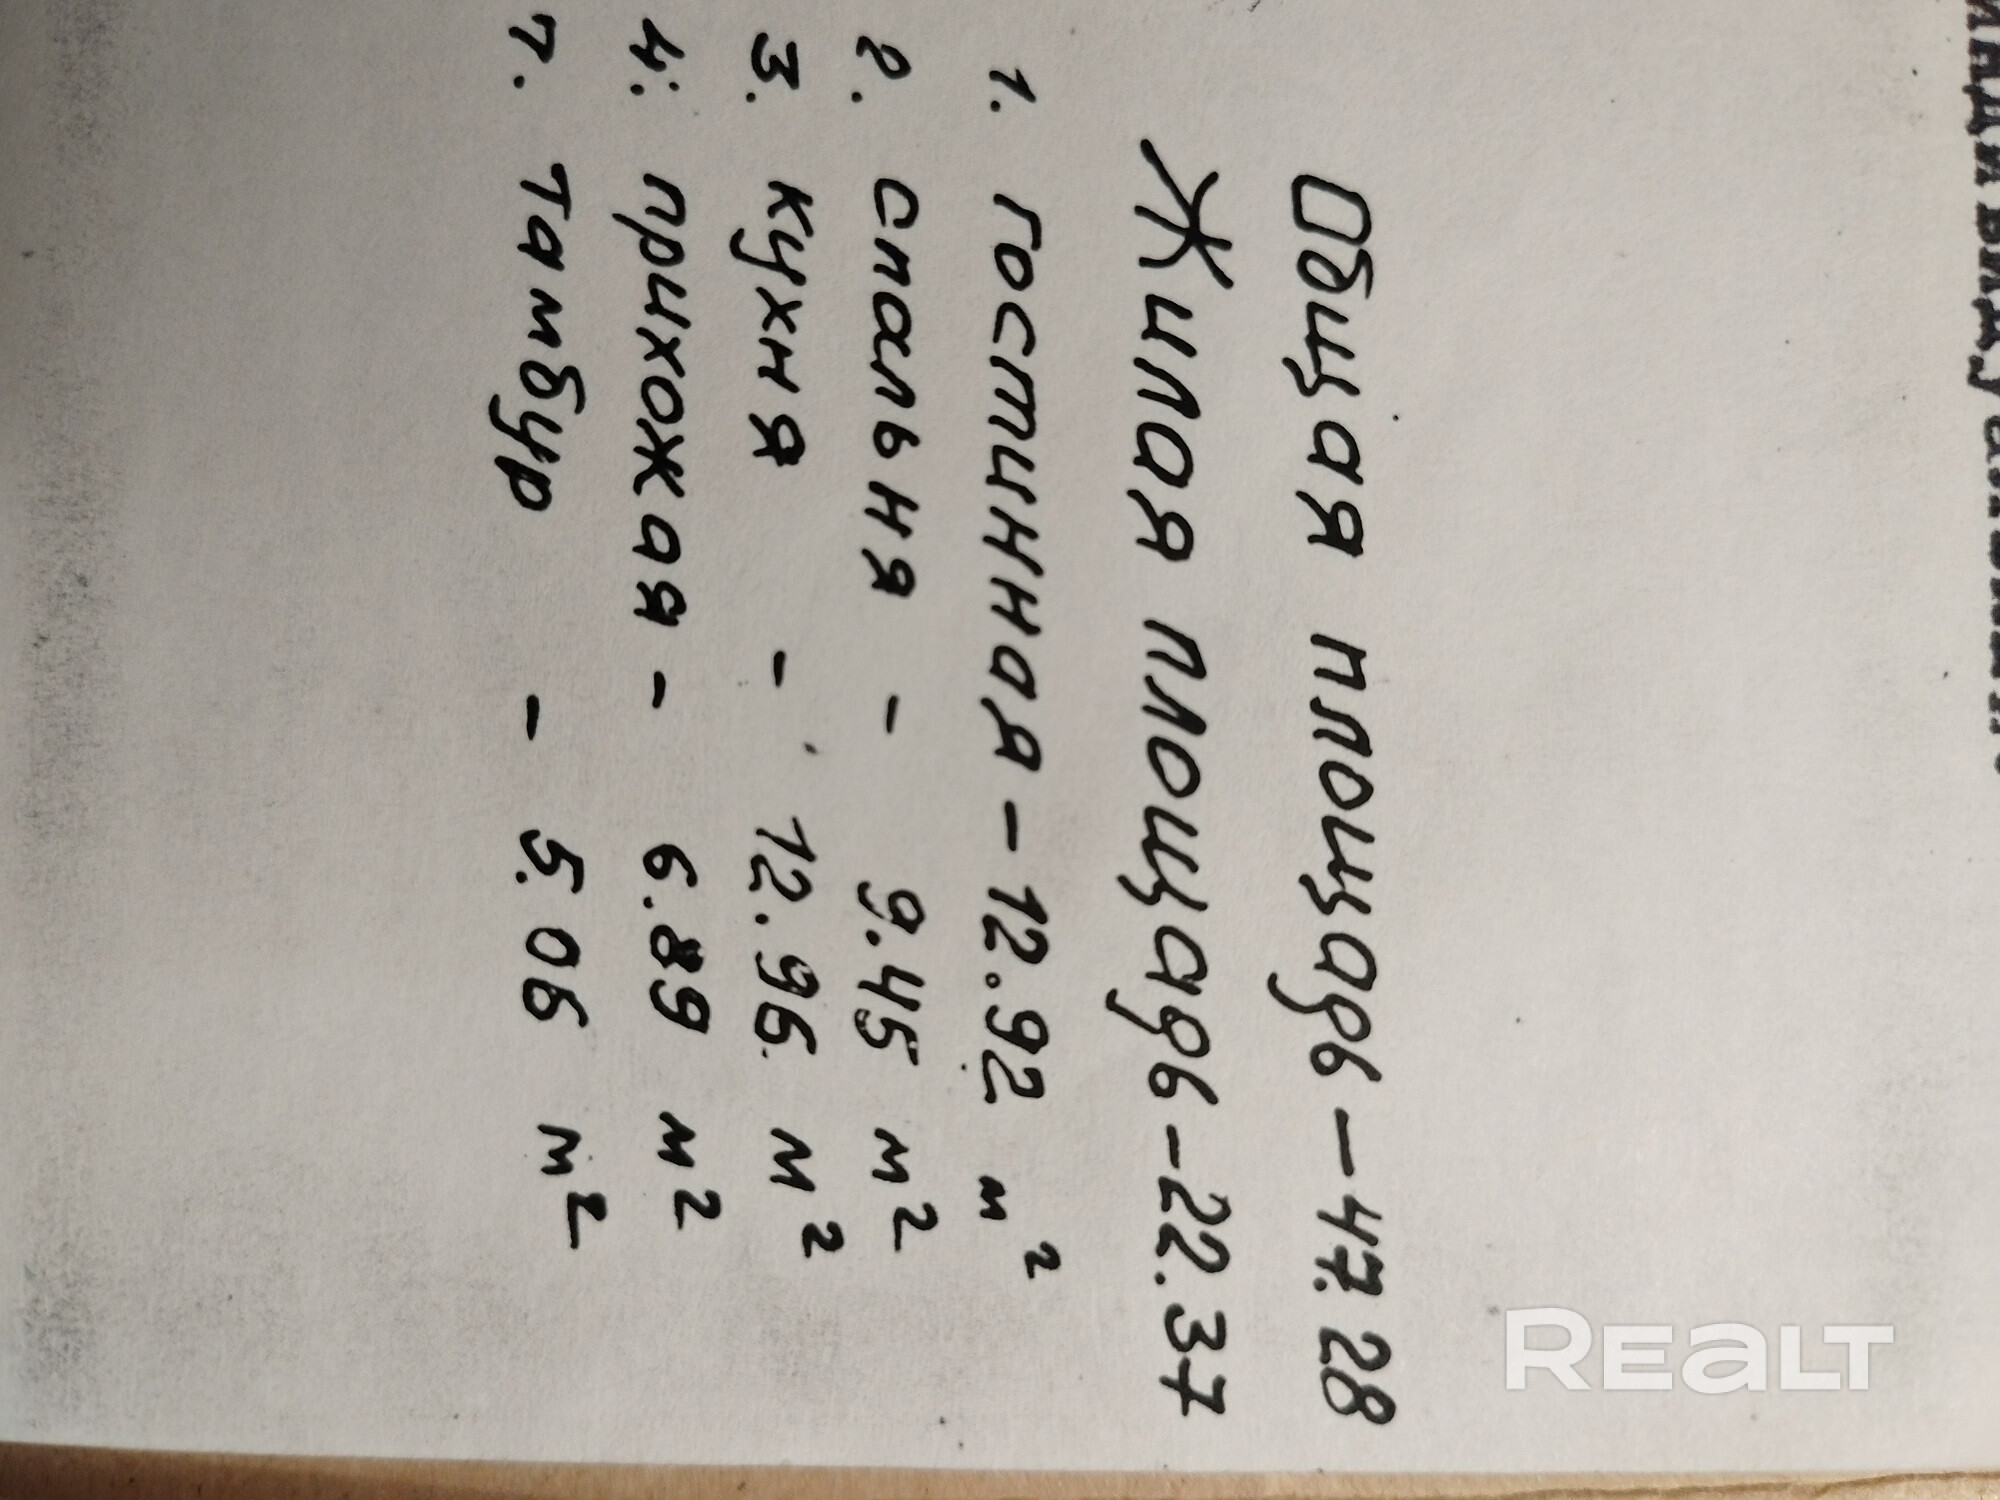 Общая площадь - 47.28
Жилая площадь - 22.37
1. гостинная - 12.92 м²
2. спальня - 9.45 м²
3. кухня - 12.96 м²
4: прихожая - 6.89 м²
7. тамбур - 5.06 м²
REALT